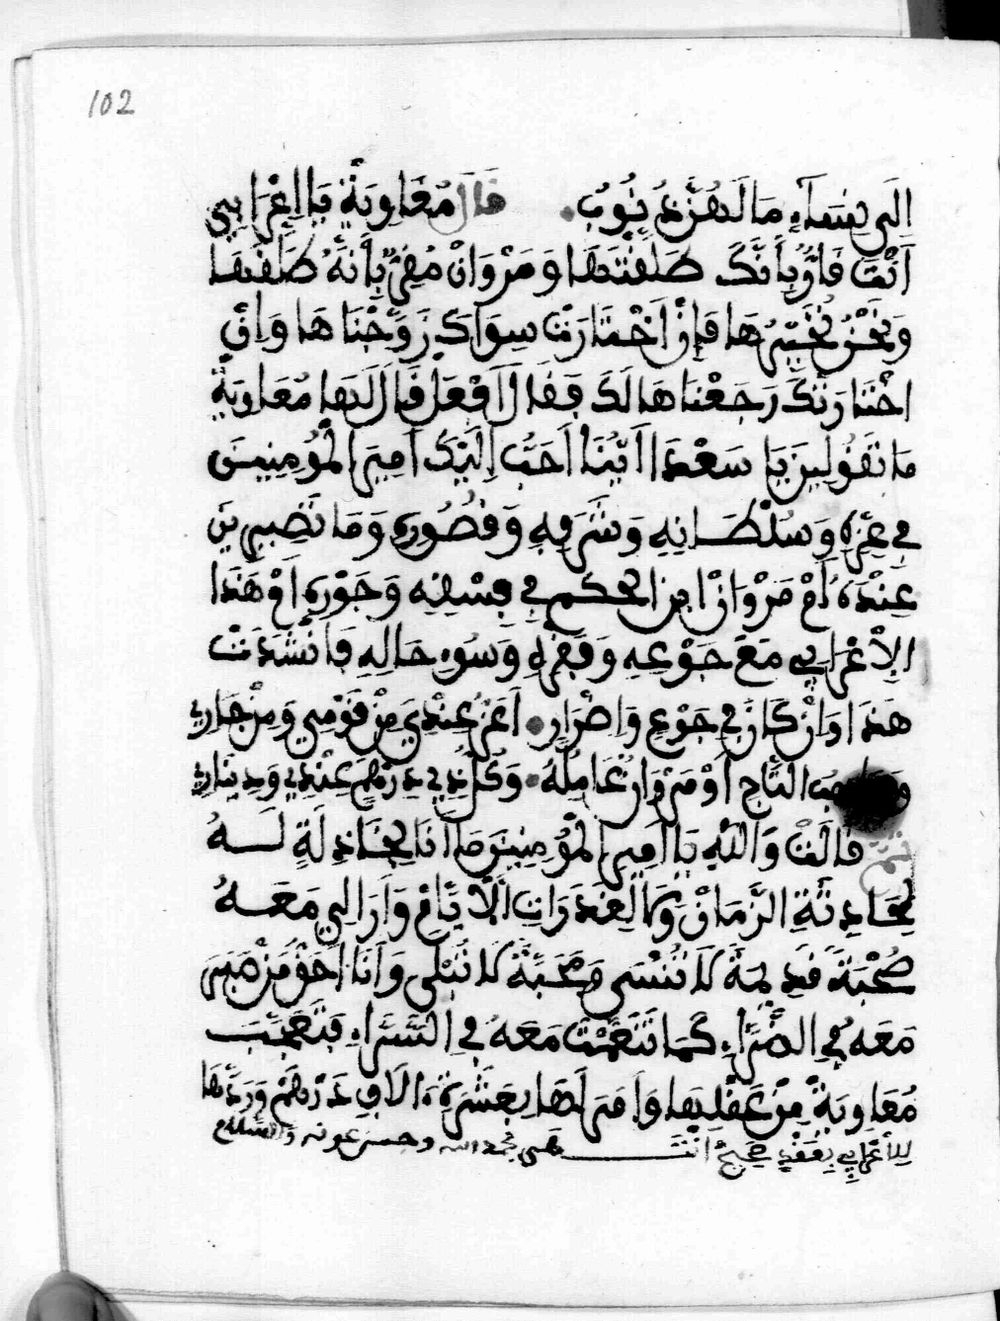 102
إلَى نِسَآءٍ مَا لَهُنَّ ذُنُوبُ. قَالَ مُعَاوِيَةُ يَا إعْرَابِي
أنْتَ قَاوٌّ بِأنَّكَ طَلَّقْتَهَا وَمَرْوَانْ مُقِرٌّ بِأنَّهُ طَلَّقَهَا
وَنَحْنُ نُخَيِّرُهَا فَإنْ اَخْتَارَتْ سِوَاكَ زَوَّجْنَاهَا وَإنْ
اخْتَارَتْكَ رَجَعْنَاهَا لَكَ فَقَالَ افْعَلْ فَقَالَ لَهَا مُعَاوِيَةُ
مَا تَقُولِينَ يَا سَعْدَا أيُّنَا اَحَبُّ إلَيْكِ أمِيرَ الْمُؤمِنِينَ
فِي عِزِّهِ وَسُلْطَانِهِ وَشَرَفِهِ وَقُصُورِهِ وَمَا تُصِيرِينَ
عِنْدَهُ أمْ مَرْوَانْ ابن الحكم فِي فِسْقِهِ وَجَوْرِهِ أوْ هَذَا
الاْعْرَابِي مَعَ جَوْعِهِ وَفَقْرِهِ وَسُوءِ حَالِهِ فَأنْشَدَتْ
هَذَا وَانْ كَانَ فِي جَوْعٍ وَاضْرَارٍ. أعَزُّ عِنْدِي مِنْ قَوْمِي وَمِنْ جَارِي
التَّاجِ أوْ مَرْوَانَ عَامِلُهُ. وَكُلُّ ذِي دِرْهَمٍ عِنْدِي وَدِينَارِي
ثم قَالَتْ وَاللَّهِ يَا أمِيرَ الْمُؤمِنِينَ مَا أنَا بِخَاذِلَةٍ لَهُ
لِحَادِثَةِ الزَّمَانْ وَلَا لِغَدَرَاتِ الأيَّامْ وَأرَا لِي مَعَهُ
صُحْبَةٌ قَدِيمَةٌ لَا تُنْسَى وَمَحَبَّةٌ لَا تَبْلَى وَأنَا أحَقُّ مَنْ صَبَرَ
مَعَهُ فِي الضَّرَّاءِ كَمَا تَنَعَّمْتُ مَعَهُ فِي السَّرَّاءِ فَتَعَجَّبَ
مُعَاوِيَةُ مِنْ عَقْلِهَا وَأمَرَ لَهَا بِعَشَرَةِ ءَالَافِ دَرْهَمْ وَرَدَّهَا
لِلأعْرَابِي بِعَقْدٍ صَحِيحْ انْتَهى بحمد الله وحسن عونه والسلام